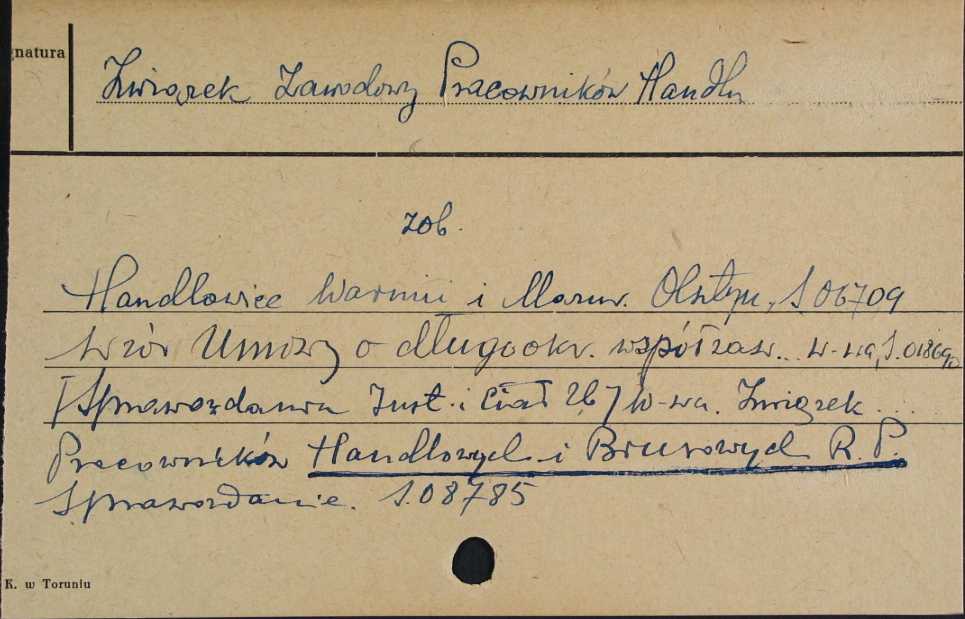 gnatura
Związek Zawodowy Pracowników Handlu
zob.
Handlowiec Warmii i Mazur. Olsztyn, S.06709
Wzór Umowy o długookr. współzaw... W-wa, S.018690
[Sprawozdania Inst. i Ciał 267 W-wa. Związek ...
Pracowników Handlowych i Biurowych R.P.
Sprawozdanie. S.08785
K. w Toruniu